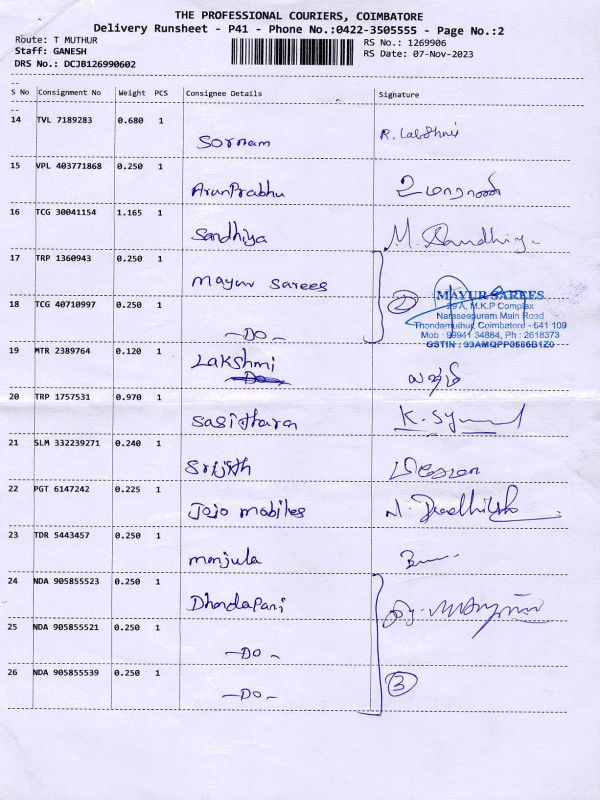 THE PROFESSIONAL COURIERS, COIMBATORE
Delivery Runsheet - P41 - Phone No.:0422-3505555 - Page No.:2
Route: T MUTHUR RS No.: 1269906
Staff: GANESH RS Date: 07-Nov-2023
DRS No.: DCJB126990602
S No Consignment No Weight PCS Consignee Details Signature
14 TVL 7189283 0.680 1
Sornam
15 VPL 403771868 0.250 1
ArunPrabhu
16 TCG 30041154 1.165 1
Sandhiya M. Sandhiya
17 TRP 1360943 0.250 1
Mayur Sarees
2
MAYUR SAREES
29 A, M.K.P Complex
Naraseepuram Main Road
Thondamuthur, Coimbatore - 641 109
Mob : 99941 34884, Ph : 2618373
18 TCG 40710997 0.250 1
-DO-
19 MTR 2389764 0.120 1
Lakshmi
20 TRP 1757531 0.970 1
Sasidharan
21 SLM 332239271 0.240 1
Srijith
22 PGT 6147242 0.225 1
Jojo mobiles
23 TDR 5443457 0.250 1
manjula
24 NDA 905855523 0.250 1
Dhandapani
25 NDA 905855521 0.250 1
-DO-
26 NDA 905855539 0.250 1
-DO- 3